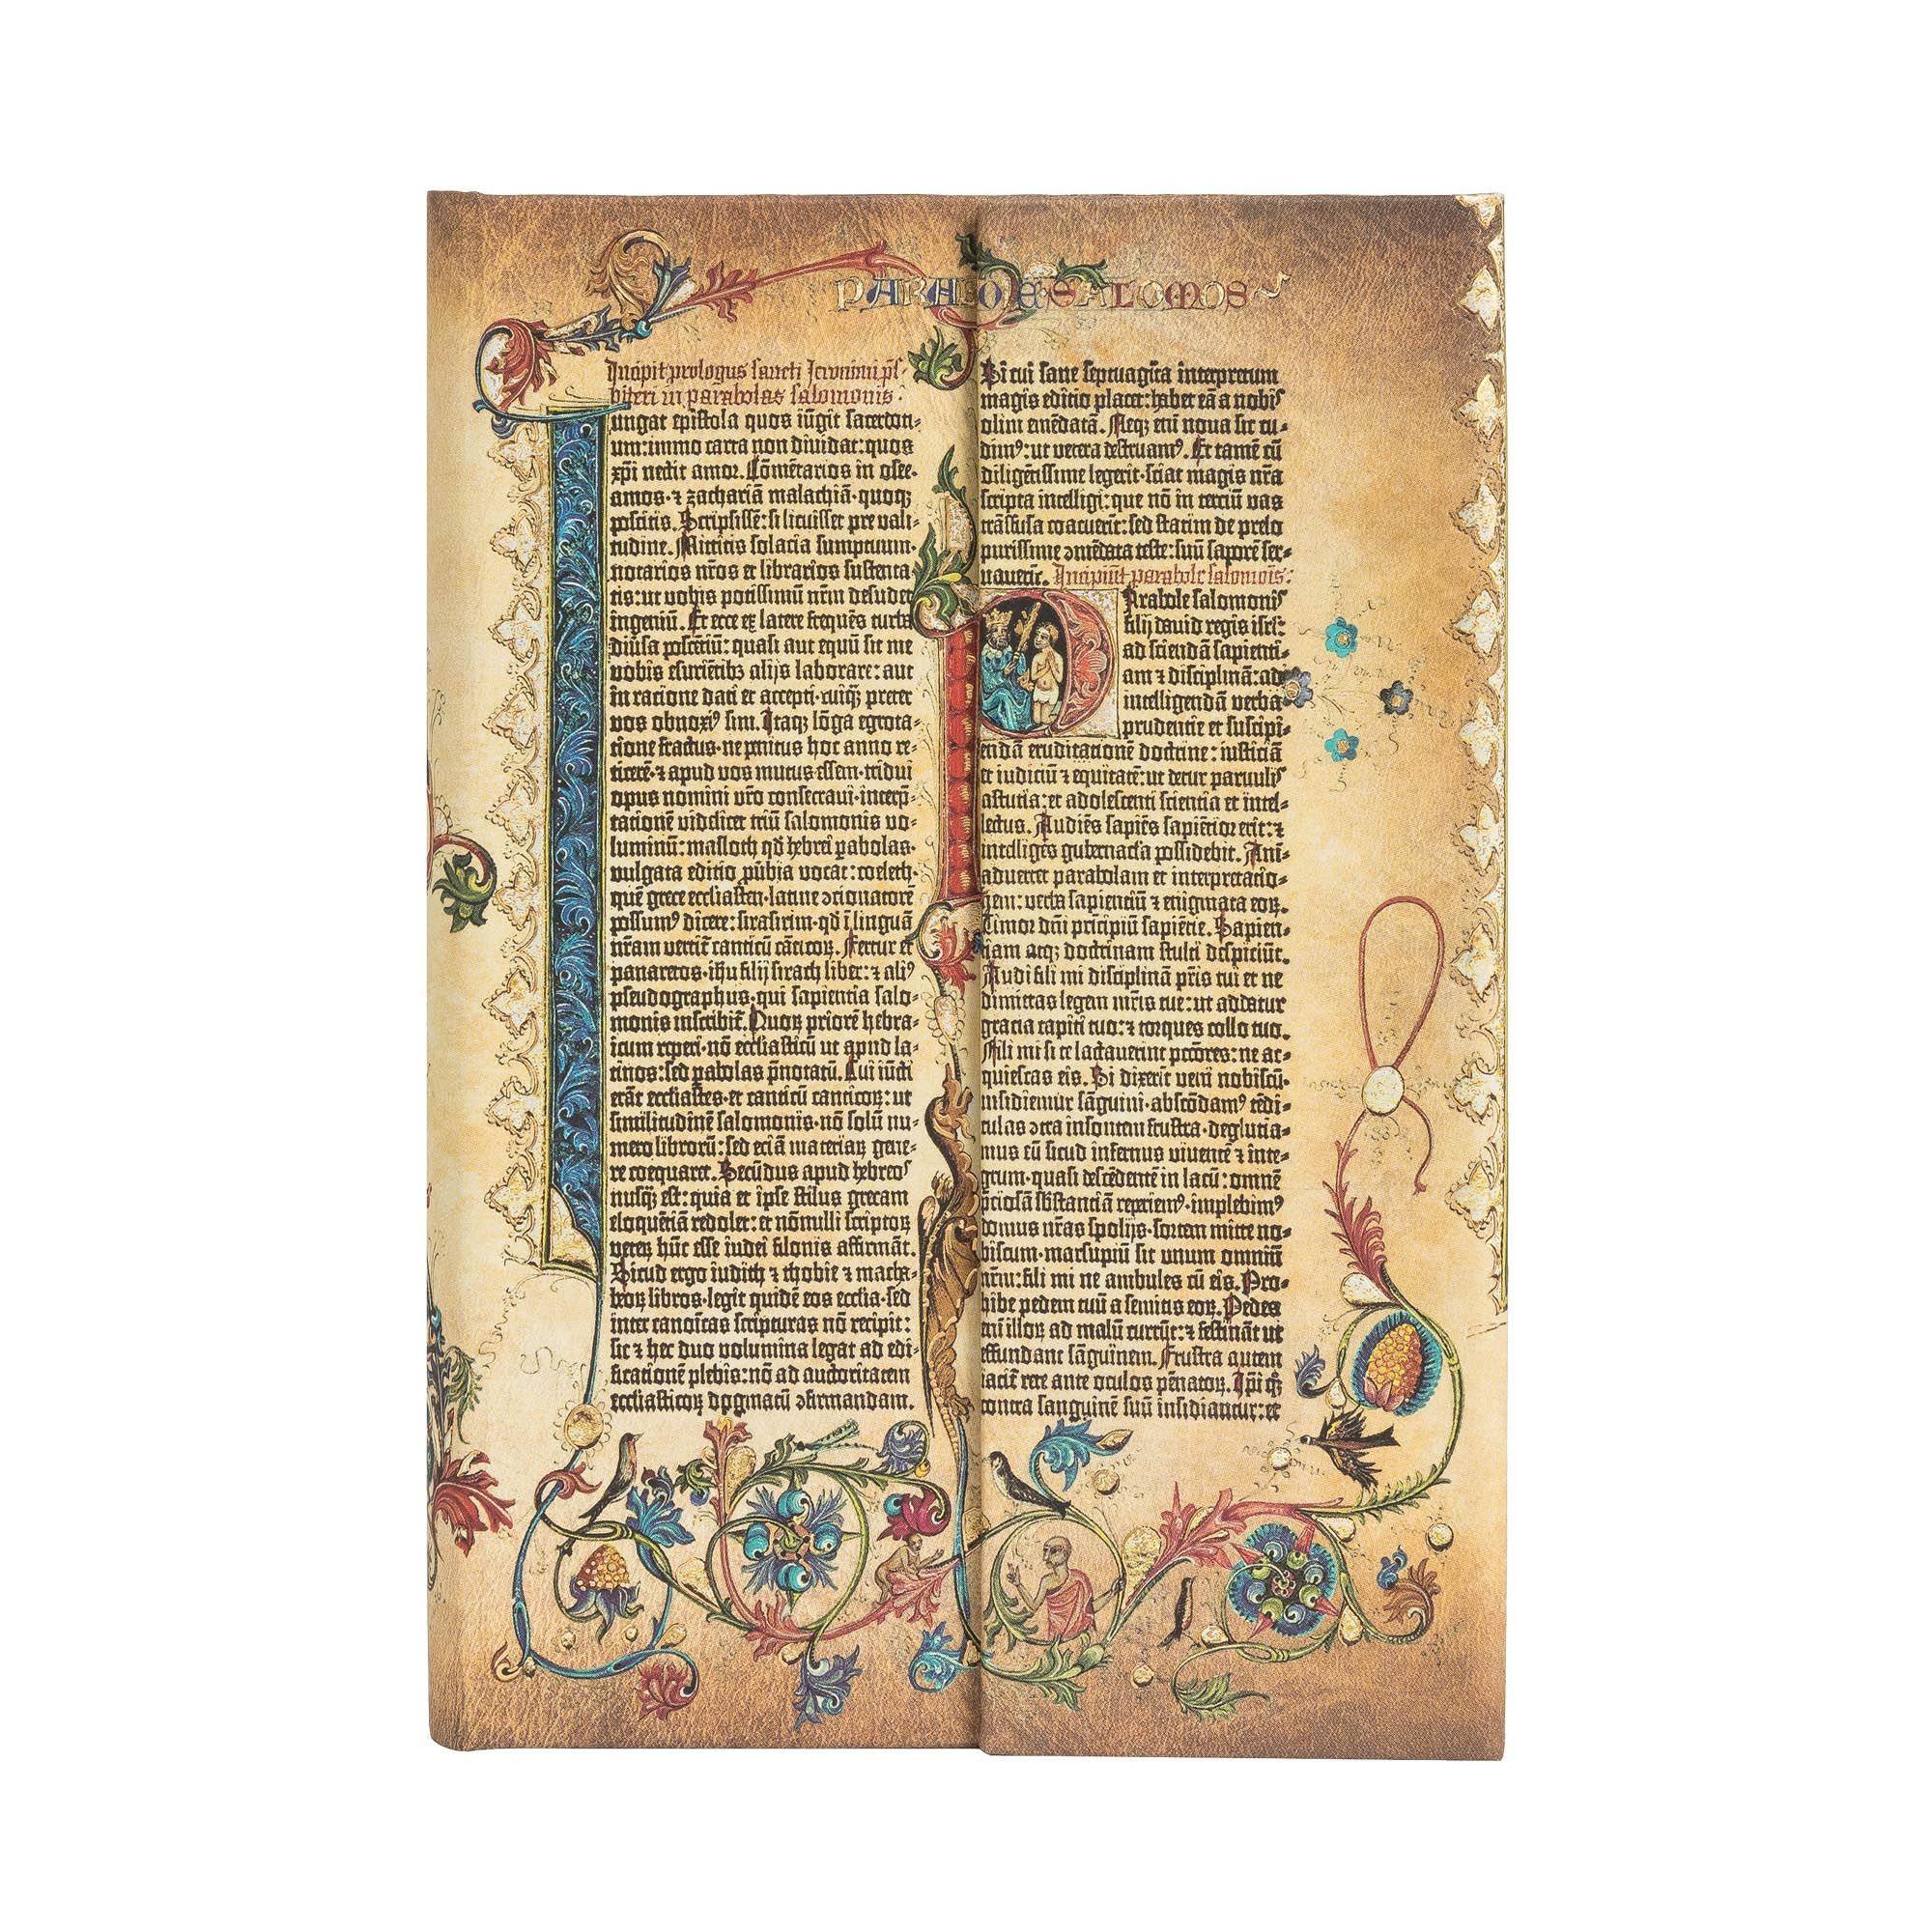 PARABOLE SALOMOIS
Incipit prologus sancti Jeronimi p̄s-
biteri in parabolas salomonis.
Iungat epistola quos iūgit sacerdoti-
um: immo carta non dividat: quos
xp̄i nectit amor. Cōmētarios in osee-
amos· ⁊ zachariā malachiā· quoqꝫ
poscitis. Scripsissē: si licuisset pre vali-
tudine. Mittitis solacia sumptuum·
notarios nr̄os et librarios sustenta-
tis: ut vobis potissimū nr̄m desudet
ingeniū. Et ece ex latere frequēs turba
diūsa poscētiū: quasi aut equū sit me
vobis esuriētibꝫ alijs laborare: aut
in racione dati et accepti· cuiqꝫ preter
vos obnoxiꝰ sim. Itaqꝫ lōga egrota-
tione fractus· ne penitus hoc anno re-
ticerē· ⁊ apud vos mutus essem· tridui
opus nomini vr̄o consecraui· interp̄-
tationē videlicet triū salomonis vo-
luminū: masloth qd̄ hebrei ꝑabolas·
vulgata editio ꝓūbia vocat: coeleth·
quē grece ecclīasten· latine ↄcionatorē
possumꝰ dicere: sirasirim· qd̄ ī linguā
nr̄am vertit̄ canticū cāticoꝝ. Fertur et
panaretos· ih̄u filij sirach liber: ⁊ aliꝰ
pseudographus· qui sapientia salo-
monis inscribit̄. Quoꝝ priorē hebra-
icum reperi· nō ecclīasticū ut apud la-
tinos: sed ꝑabolas p̄notatū. Cui iūcti
erāt ecclīastes· et canticū canticoꝝ: ut
similitudinē salomonis· nō solū nu-
mero librorū: sed eciā materiaꝝ gene-
re coequaret. Secūdus apud hebreos
nusqꝫ est: quia et ipse stilus grecam
eloquētiā redolet: et nōnulli scriptoꝝ
veteꝝ hūc esse iudei filonis affirmāt.
Sicud ergo iudith ⁊ thobie ⁊ macha-
beoꝝ libros· legit quidē eos ecclīa· sed
inter canoīcas scripturas nō recipit:
sic ⁊ hec duo volumina legat ad edi-
ficationē plebis: nō ad auctoritatem
ecclīasticoꝝ dogmatū ↄfirmandam.
Si cui sane septuagīta interpretum
magis editio placet: habet eā a nobis
olim emēdatā. Neqꝫ em̄ noua sic cu-
dimꝰ: ut vetera destruamꝰ. Et tamē cū
diligētissime legerit· sciat magis nr̄a
scripta intelligi: que nō in terciū vas
trāsfusa coacuerīt: sed statim de prelo
purissime ↄmēdata teste: suū saporē ser-
uauerīt. Incipiūt parabole salomōis:
Parabole salomonis
filij dauid regis isrl̄:
ad sciendā sapienti-
am ⁊ disciplinā: ad
intelligendā verba
prudentie et suscipi-
endā eruditationē doctrine: iusticiā
et iudiciū ⁊ equitatē: ut detur paruulis
astutia: et adolescenti scientia et intel-
lectus. Audiēs sapiēs sapiētior erit: ⁊
intelligēs gubernacl̄a possidebit. Ani-
aduertet parabolam et interpretatio-
nem: verba sapientiū ⁊ enigmata eoꝝ.
Timor dn̄i prīcipiū sapiētie. Sapien-
tiam atqꝫ doctrinam stulti despiciūt.
Audi fili mi disciplinā pr̄is tui et ne
dimittas legem mr̄is tue: ut addatur
gracia capiti tuo: ⁊ torques collo tuo.
Fili mi si te lactauerint pctōres: ne ac-
quiescas eis. Si dixerīt veni nobiscū·
insidiemur sāguini· abscōdamꝰ tēdi-
culas ↄtra insontem frustra· deglutia-
mus eū sicud infernus viuentē ⁊ inte-
grum· quasi descēdētē in lacū: omnē
p̄ciosā sb̄stantiā reperiemꝰ· implebimꝰ
domus nr̄as spolijs· sortem mitte no-
biscum· marsupiū sit unum omniū
nr̄m: fili mi ne ambules cū eis. Pro-
hibe pedem tuū a semitis eoꝝ. Pedes
em̄ illoꝝ ad malū currūt: ⁊ festināt ut
effundant sāguinem. Frustra autem
iacit̄ rete ante oculos pēnatoꝝ. Ip̄i qꝫ
contra sanguinē suū insidiantur: et